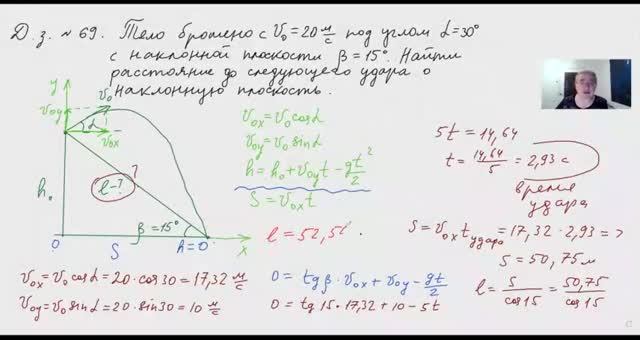 Д. з. № 69. Тело брошено с V₀ = 20 м/с под углом α = 30°
с наклонной плоскости β = 15°. Найти
расстояние до следующего удара о
наклонную плоскость.
y
V₀
V₀y
α
V₀x
h₀
l - ?
β = 15°
0
S
h = 0
x
V₀x = V₀ cos α
V₀y = V₀ sin α
h = h₀ + V₀y t - gt²/2
S = V₀x t
l = 52,5
5t = 14,64
t = 14,64/5 = 2,93 с
время
удара
S = V₀x t удара = 17,32 · 2,93 = >
S = 50,75 м
l = S/cos 15 = 50,75/cos 15
V₀x = V₀ cos α = 20 · cos 30 = 17,32 м/с
V₀y = V₀ sin α = 20 · sin 30 = 10 м/с
0 = tg β · V₀x + V₀y - gt/2
0 = tg 15 · 17,32 + 10 - 5t